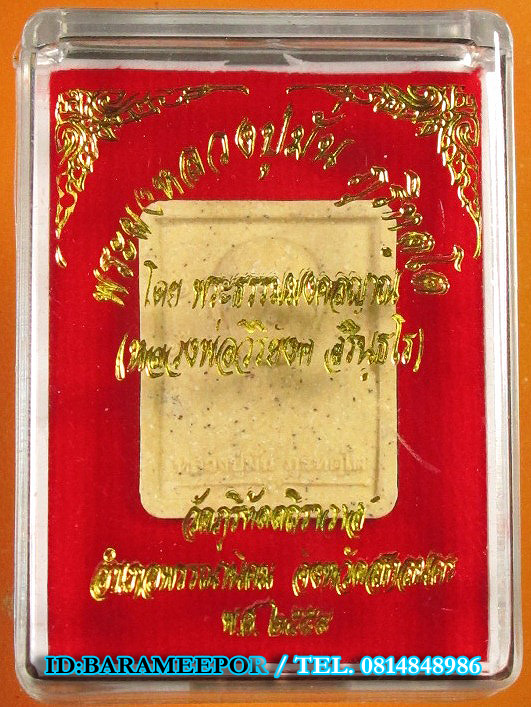 พระผงหลวงปู่มั่น ภูริทตฺโต
โดย พระธรรมมงคลญาณ
(หลวงพ่อวิริยังค์ สิรินฺธโร)
วัดภูริทัตตถิราวาส
อำเภอพรรณานิคม จังหวัดสกลนคร
พ.ศ. ๒๕๕๘
ID:BARAMEEPOR / TEL. 0814848986